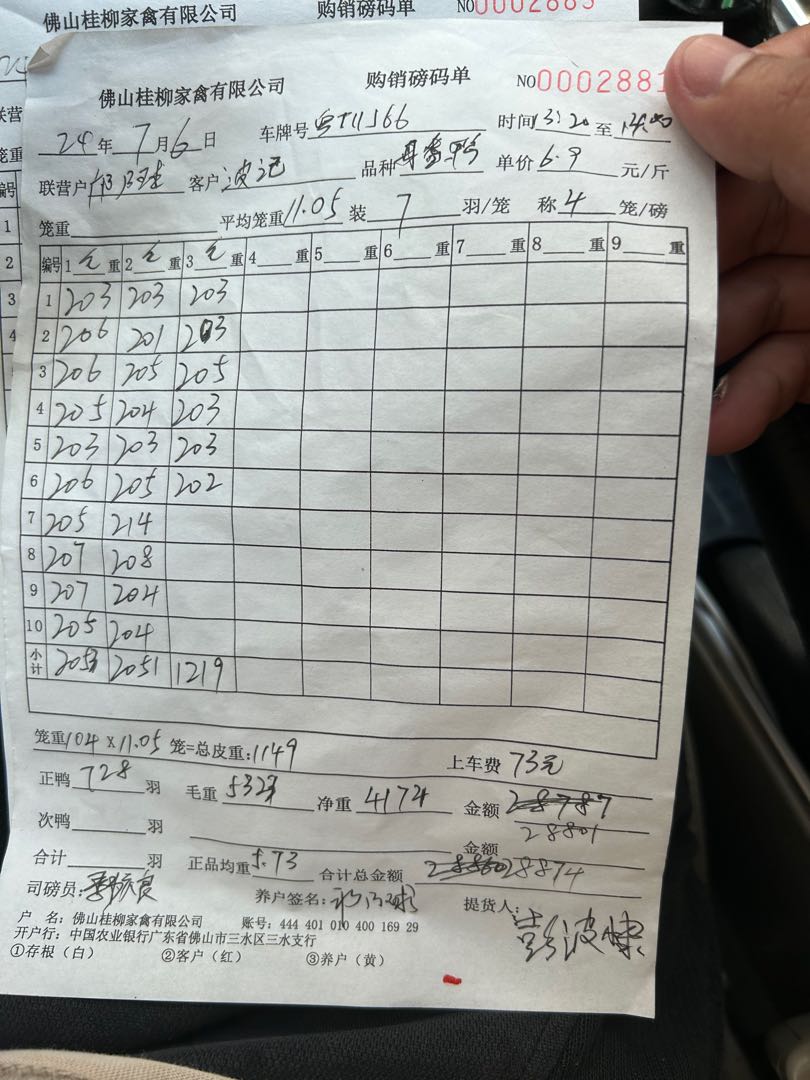 佛山桂柳家禽有限公司 购销磅码单 NO0002883
佛山桂柳家禽有限公司 购销磅码单 NO0002881
24年7月6日 车牌号 时间13:20至14:00
联营户 客户波记 品种 单价6.9元/斤
笼重 平均笼重11.05 装7羽/笼 称4笼/磅
编号 1毛重 2毛重 3毛重 4重 5重 6重 7重 8重 9重
1 203 203 203
2 206 201 203
3 206 205 205
4 205 204 203
5 203 203 203
6 206 205 202
7 205 214
8 207 208
9 207 204
10 205 204
小计 2053 2051 1219
笼重104×11.05笼=总皮重:1149 上车费73元
正鸭728羽 毛重5323 净重4174 金额28787
28801
次鸭羽 金额
合计羽 正品均重5.73 合计总金额28874
司磅员: 养户签名: 提货人:彭波
户 名:佛山桂柳家禽有限公司 账号:444 401 010 400 169 29
开户行:中国农业银行广东省佛山市三水区三水支行
①存根(白) ②客户(红) ③养户(黄)